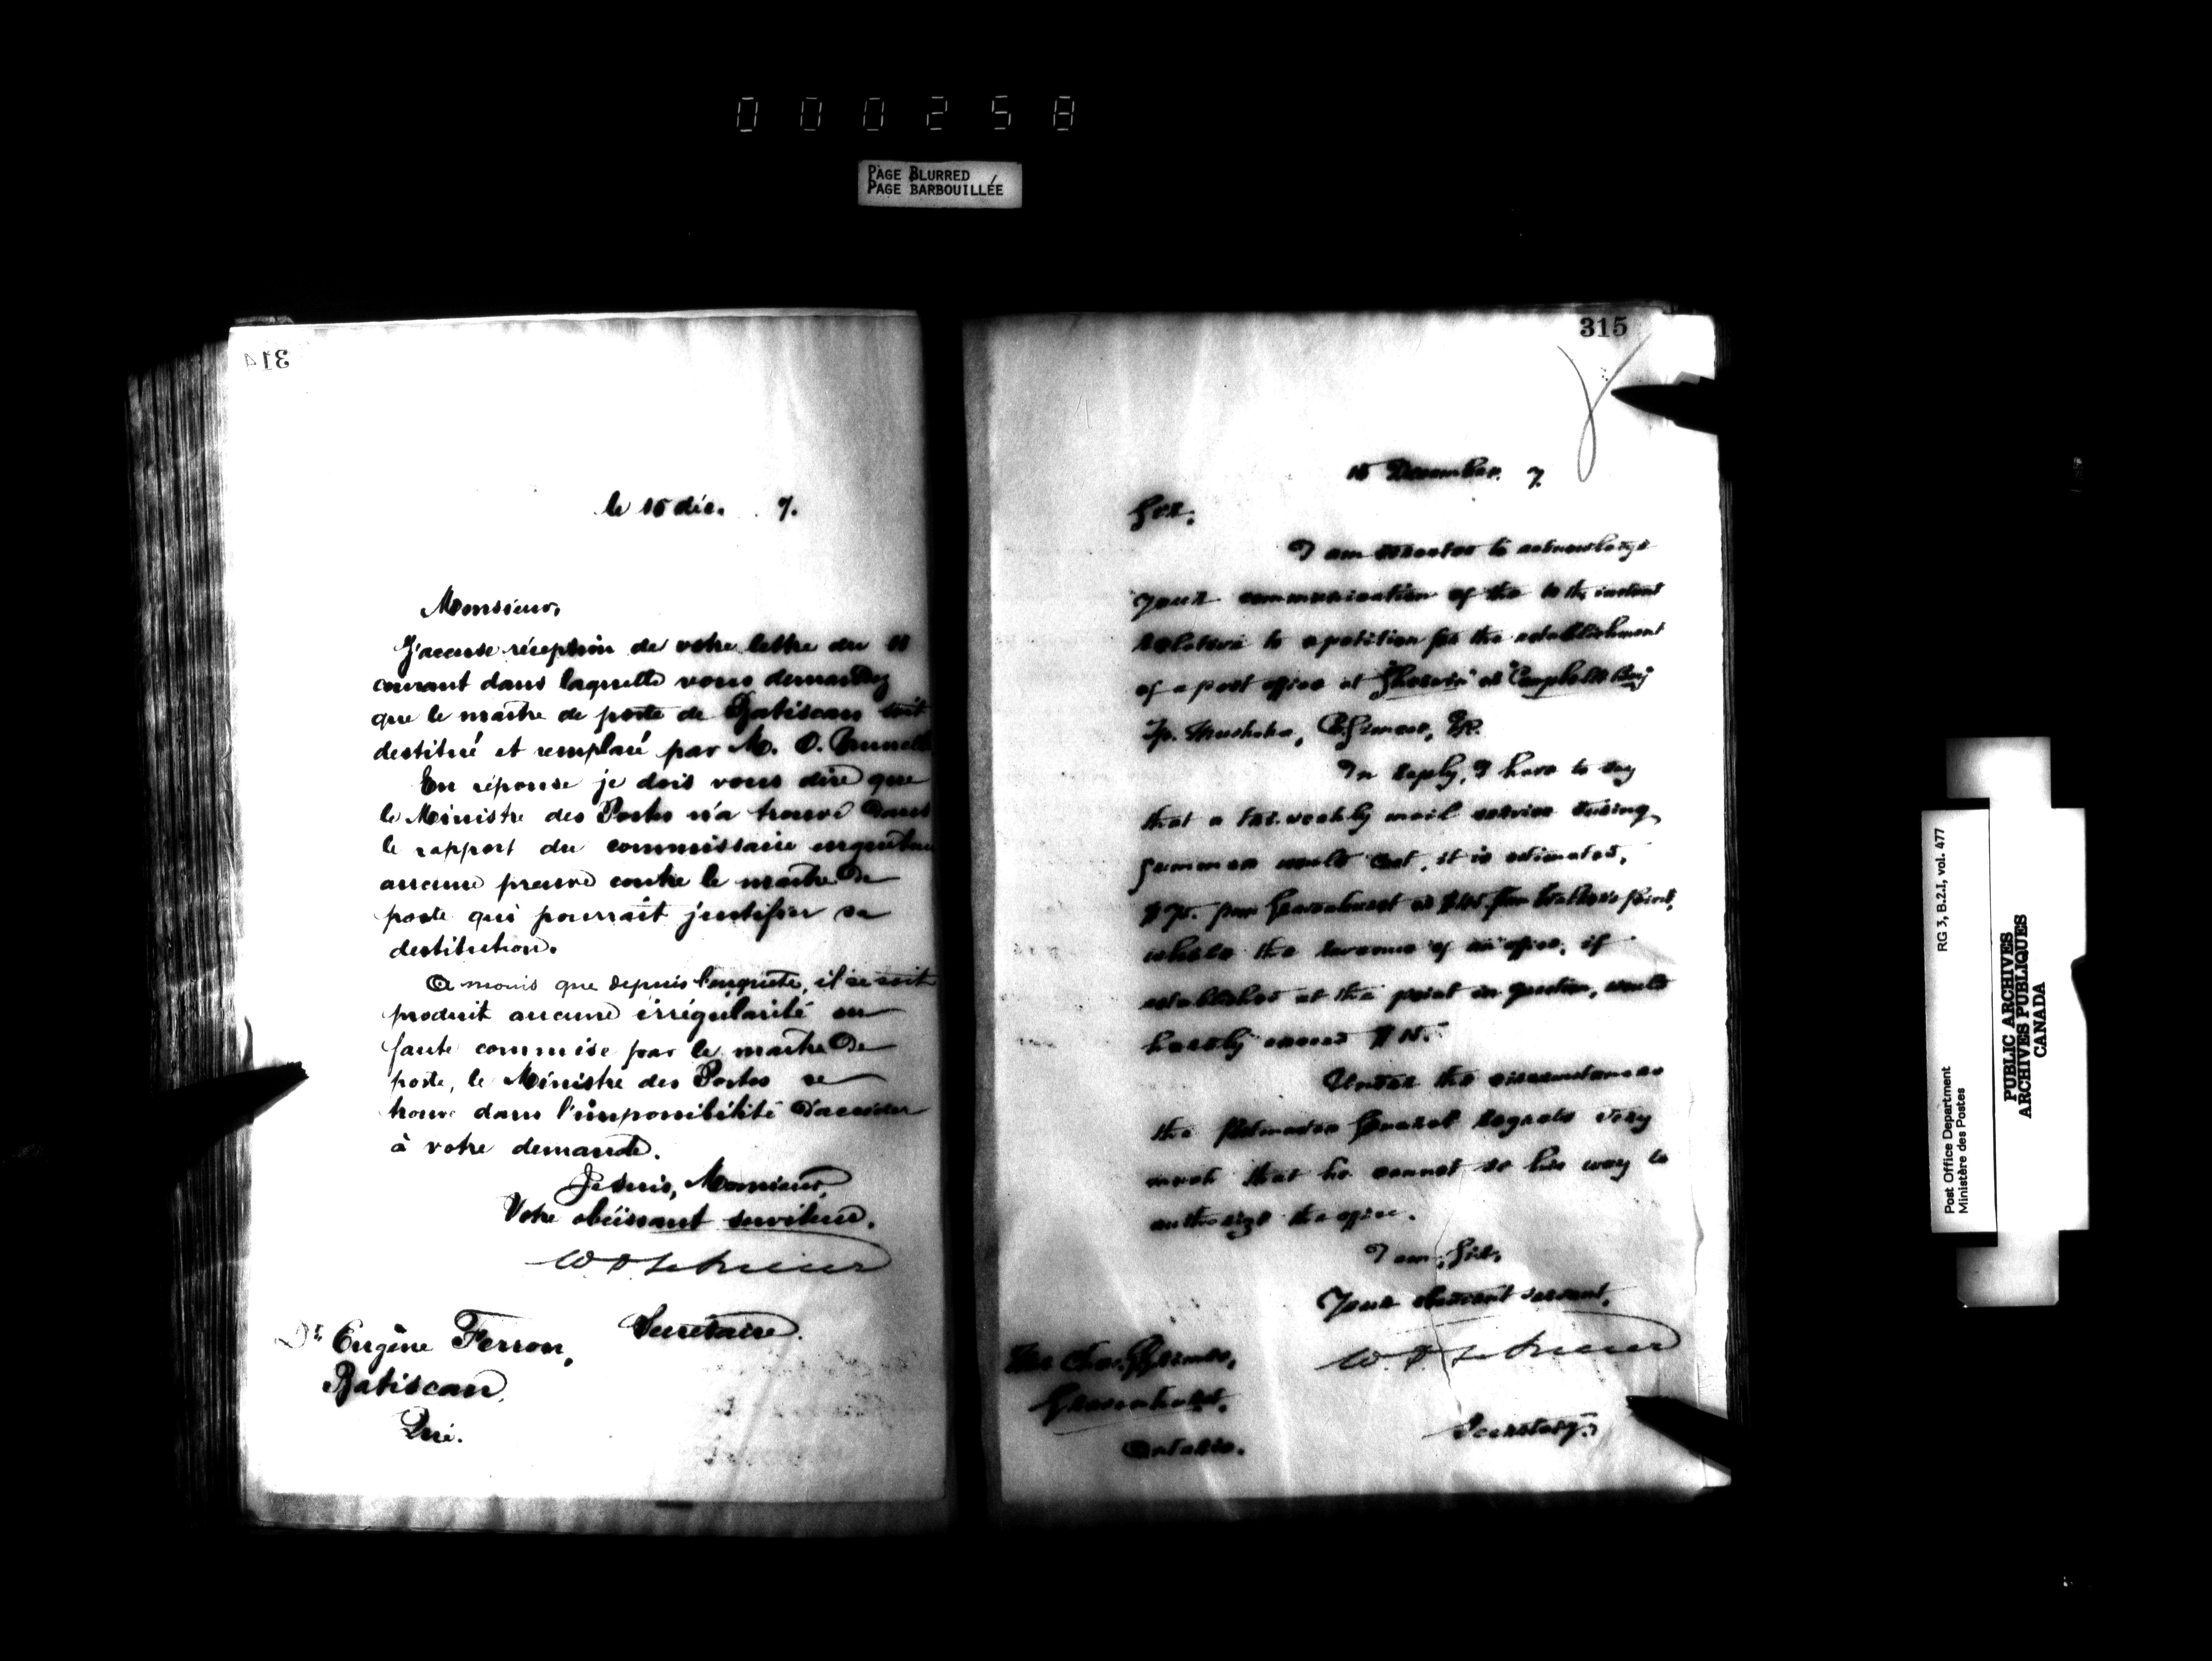 000258
PAGE BLURRED
PAGE BARBOUILLÉE
314
le 15 déc. 7.
Monsieur,
J'accuse réception de votre lettre du 11
courant dans laquelle vous demandez
que le maître de poste de Batiscan soit
destitué et remplacé par M. O. Brunelle
En réponse je dois vous dire que
le Ministre des Postes n'a trouvé dans
le rapport du commissaire enquêteur
aucune preuve contre le maître de
poste qui pourrait justifier sa
destitution.
A moins que depuis l'enquête, il se soit
produit aucune irrégularité ou
faute commise par le maître de
poste, le Ministre des Postes se
trouve dans l'impossibilité d'accéder
à votre demande.
Je suis, Monsieur,
Votre obéissant serviteur.
Secrétaire.
Dr Eugène Ferron,
Batiscan,
Qué.
315
15 December. 7.
Sir,
I am directed to acknowledge
your communication of the 10th instant
relative to a petition for the establishment
of a post office at at Campbell's Bay
Tp. Muskoka,
In reply, I have to say
that a tri-weekly mail service during
summer would cost, it is estimated,
from Gravenhurst or from Walker's Point,
while the revenue of an office, if
established at the point in question, would
hardly exceed
Under the circumstances
the Postmaster General regrets very
much that he cannot see his way to
authorize the office.
I am, Sir,
Your obedient servant,
Secretary.
Gravenhurst,
Ontario.
Post Office Department
Ministère des Postes
RG 3, B.2.I, vol. 477
PUBLIC ARCHIVES
ARCHIVES PUBLIQUES
CANADA